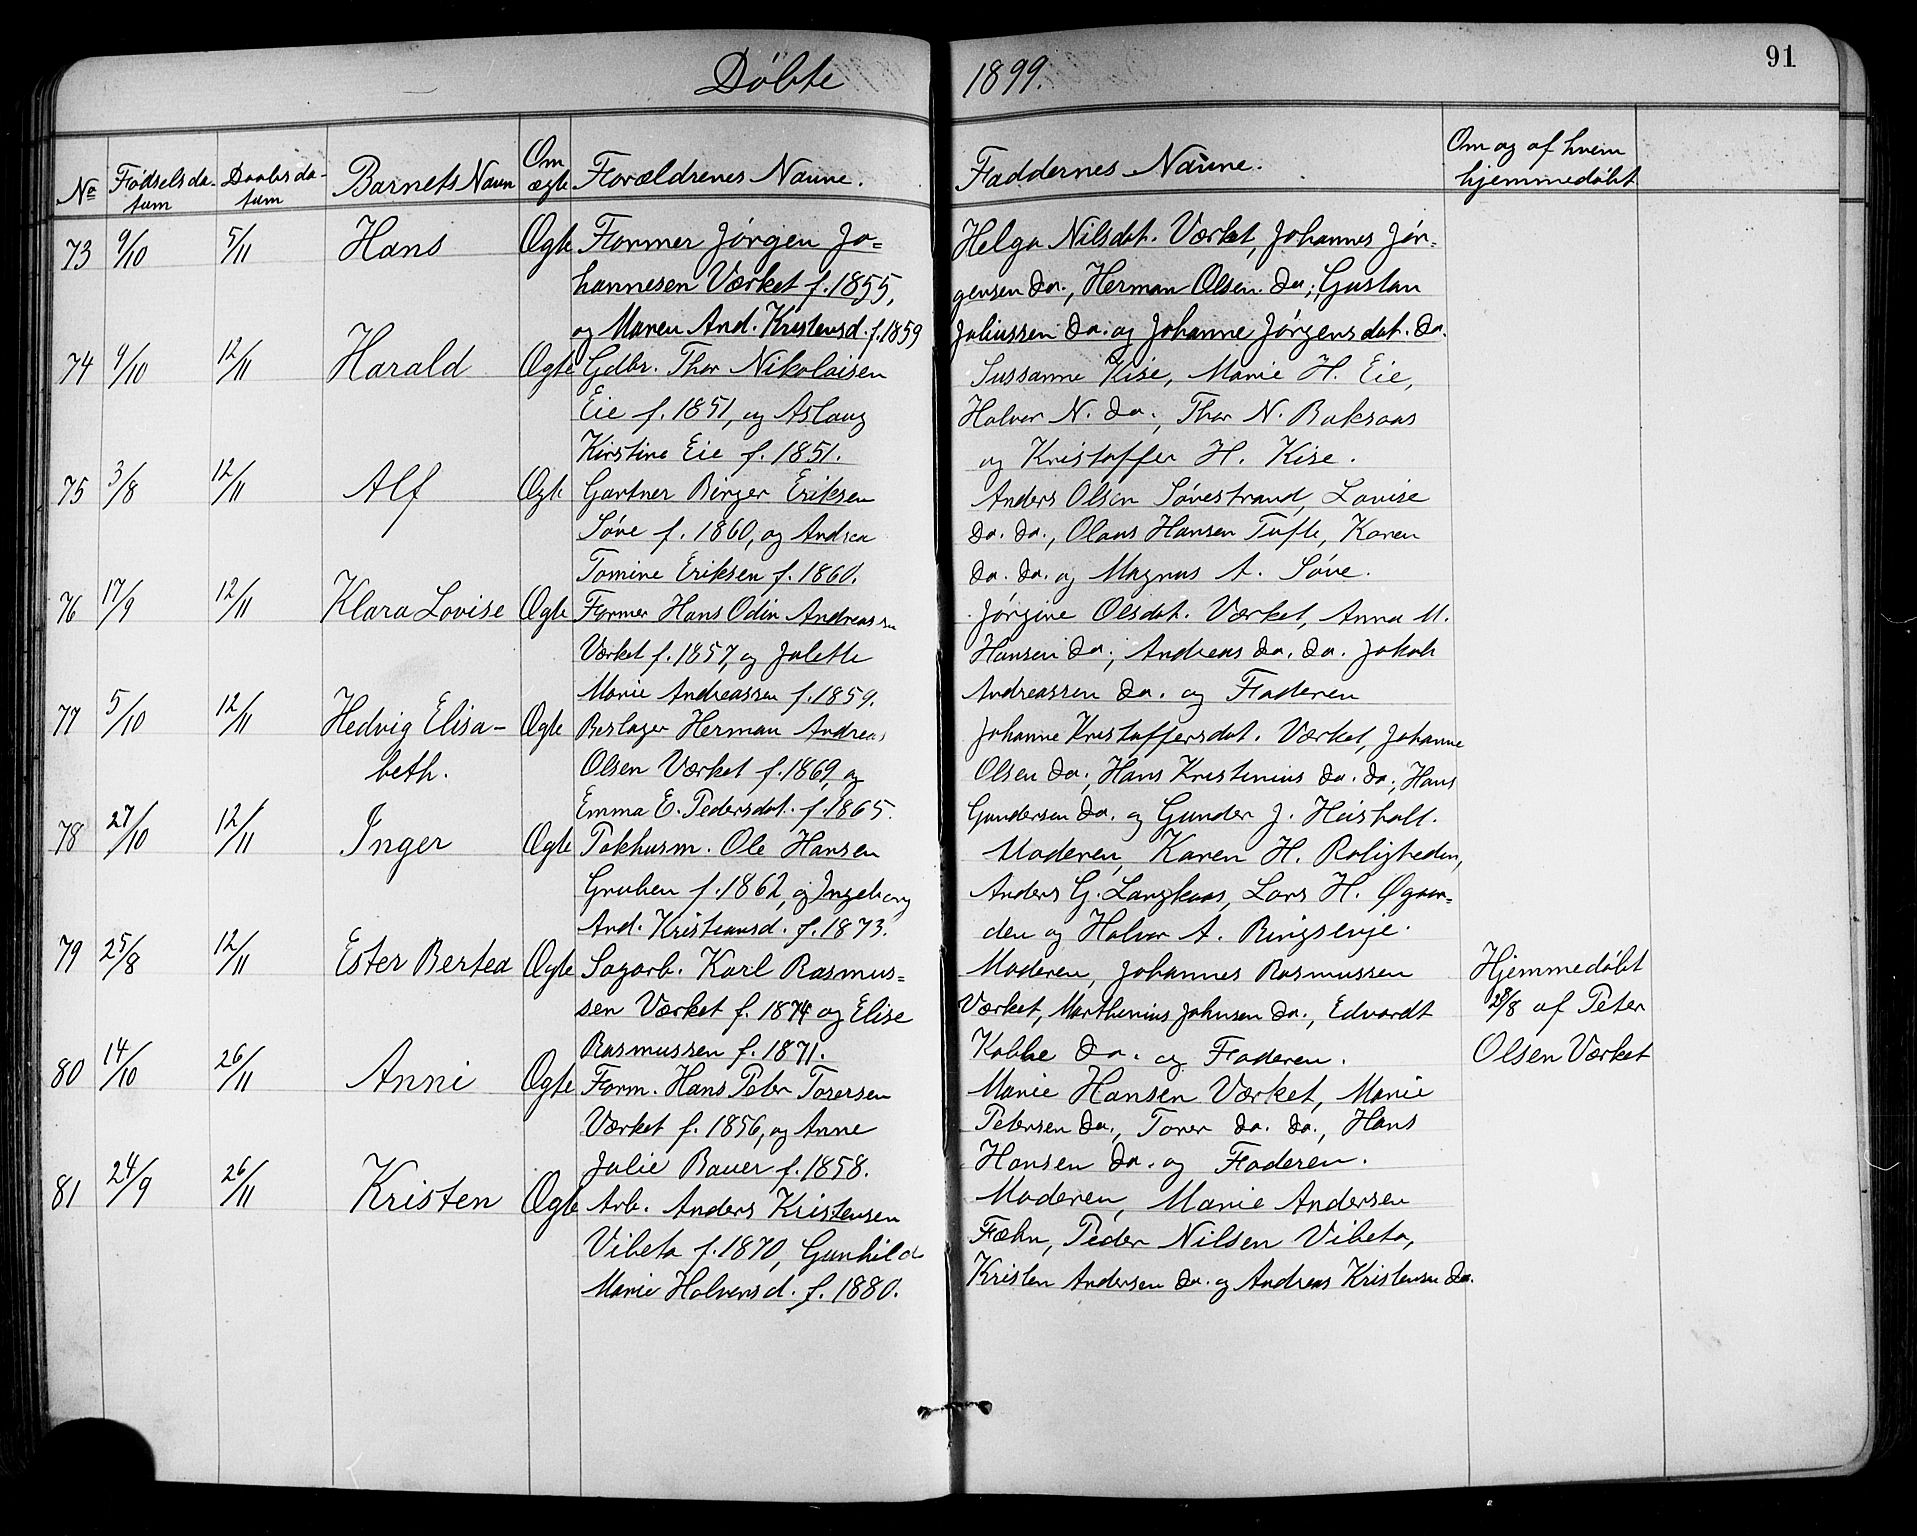 91
Døbte 1899.
No Fødselsda- Daabsda- Barnets Navn Om Forældrenes Navne. Faddernes Navne. Om og af hvem
tum tum ægte hjemmedøbt
73 9/10 5/11 Hans Ægte Former Jørgen Jo= Helga Nilsdat. Værket, Johannes Jør-
hannesen Værket f. 1855, gensen do., Herman Olsen do., Gustav
og Maren And. Kristensd. f. 1859 Juliussen do. og Johanne Jørgensdat. do.
74 9/10 12/11 Harald Ægte Gdbr. Thor Nikolaisen Sussanne Kise, Marie H. Eie,
Eie f. 1851, og Aslaug Halvor N. do., Thor N. Buksaas
Kirstine Eie f. 1851. og Kristoffer H. Kise.
75 3/8 12/11 Alf Ægte Gartner Birger Eriksen Anders Olsen Sövestrand, Lovise
Söve f. 1860, og Andrea do. do., Olaus Hansen Tufte, Karen
Tomine Eriksen f. 1860. do. do. og Magnus A. Söve.
76 17/9 12/11 Klara Lovise Ægte Former Hans Odin Andreassen Jørgine Olsdat. Værket, Anna M.
Værket f. 1857, og Julette Hansen do., Andreas do. do. Jakob
Marie Andreassen f. 1859. Andreassen do. og Faderen
77 5/10 12/11 Hedvig Elisa- Ægte Beslager Herman Andreas Johanne Kristoffersdat. Værket, Johanne
beth. Olsen Værket f. 1869, og Olsen do., Hans Kristinius do. do., Hans
Emma E. Pedersdat. f. 1865. Gundersen do. og Gunder J. Heisholt.
78 27/10 12/11 Inger Ægte Pakhusm. Ole Hansen Moderen, Karen H. Roligheden,
Gruben f. 1862, og Ingeborg Anders G. Langkaas, Lars H. Øgaar-
And. Kristiansd. f. 1873. den og Halvor A. Ringsevje.
79 25/8 12/11 Ester Bertea Ægte Sagarb. Karl Rasmus= Moderen, Johannes Rasmussen Hjemmedøbt
sen Værket f. 1874 og Elise Værket, Marthinius Johnsen do., Edvardt 28/8 af Peter
Rasmussen f. 1871. Kabbe do. og Faderen. Olsen Værket
80 14/10 26/11 Anni Ægte Form. Hans Peter Torersen Marie Hansen Værket, Marie
Værket f. 1856, og Anne Petersen do., Torer do. do., Hans
Julie Bauer f. 1858. Hansen do. og Faderen.
81 24/9 26/11 Kristen Ægte Arb. Anders Kristensen Moderen, Marie Andersen
Vibeto f. 1870, Gunhild Fæhn, Peder Nilsen Vibeto,
Marie Halvorsd. f. 1880. Kristen Andersen do. og Andreas Kristensen do.